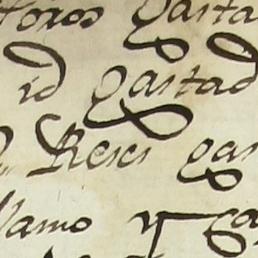 toros gasta
id gastad
Reses gas
llamo y ga